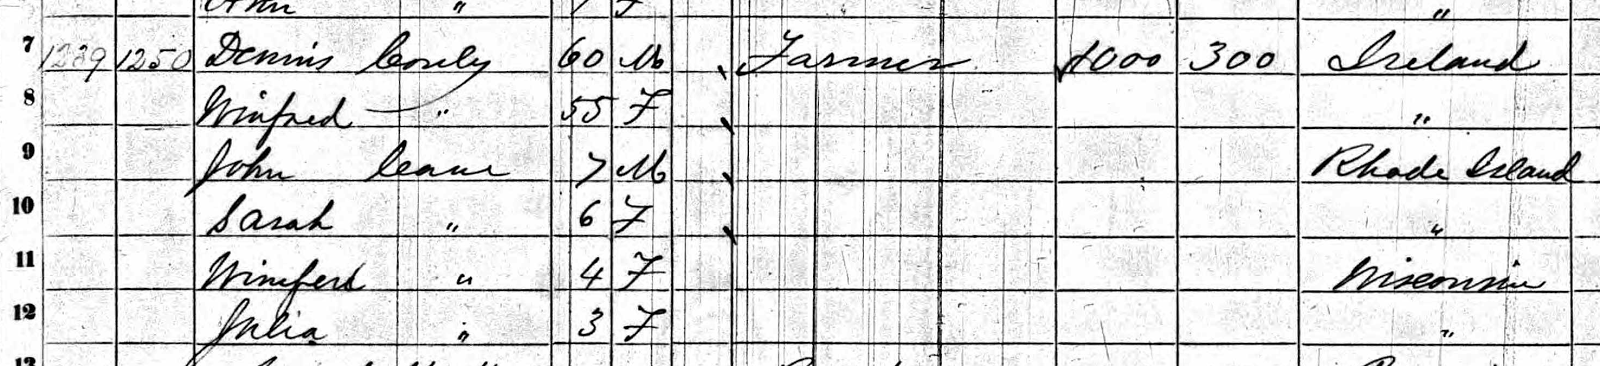 Ann " 7 F "
7 1239 1250 Dennis Conely 60 M Farmer 1000 300 Ireland
8 Winfred " 55 F "
9 John Cane 7 M Rhode Island
10 Sarah " 6 F "
11 Winiferd " 4 F Wisconsin
12 Julia " 3 F "
13